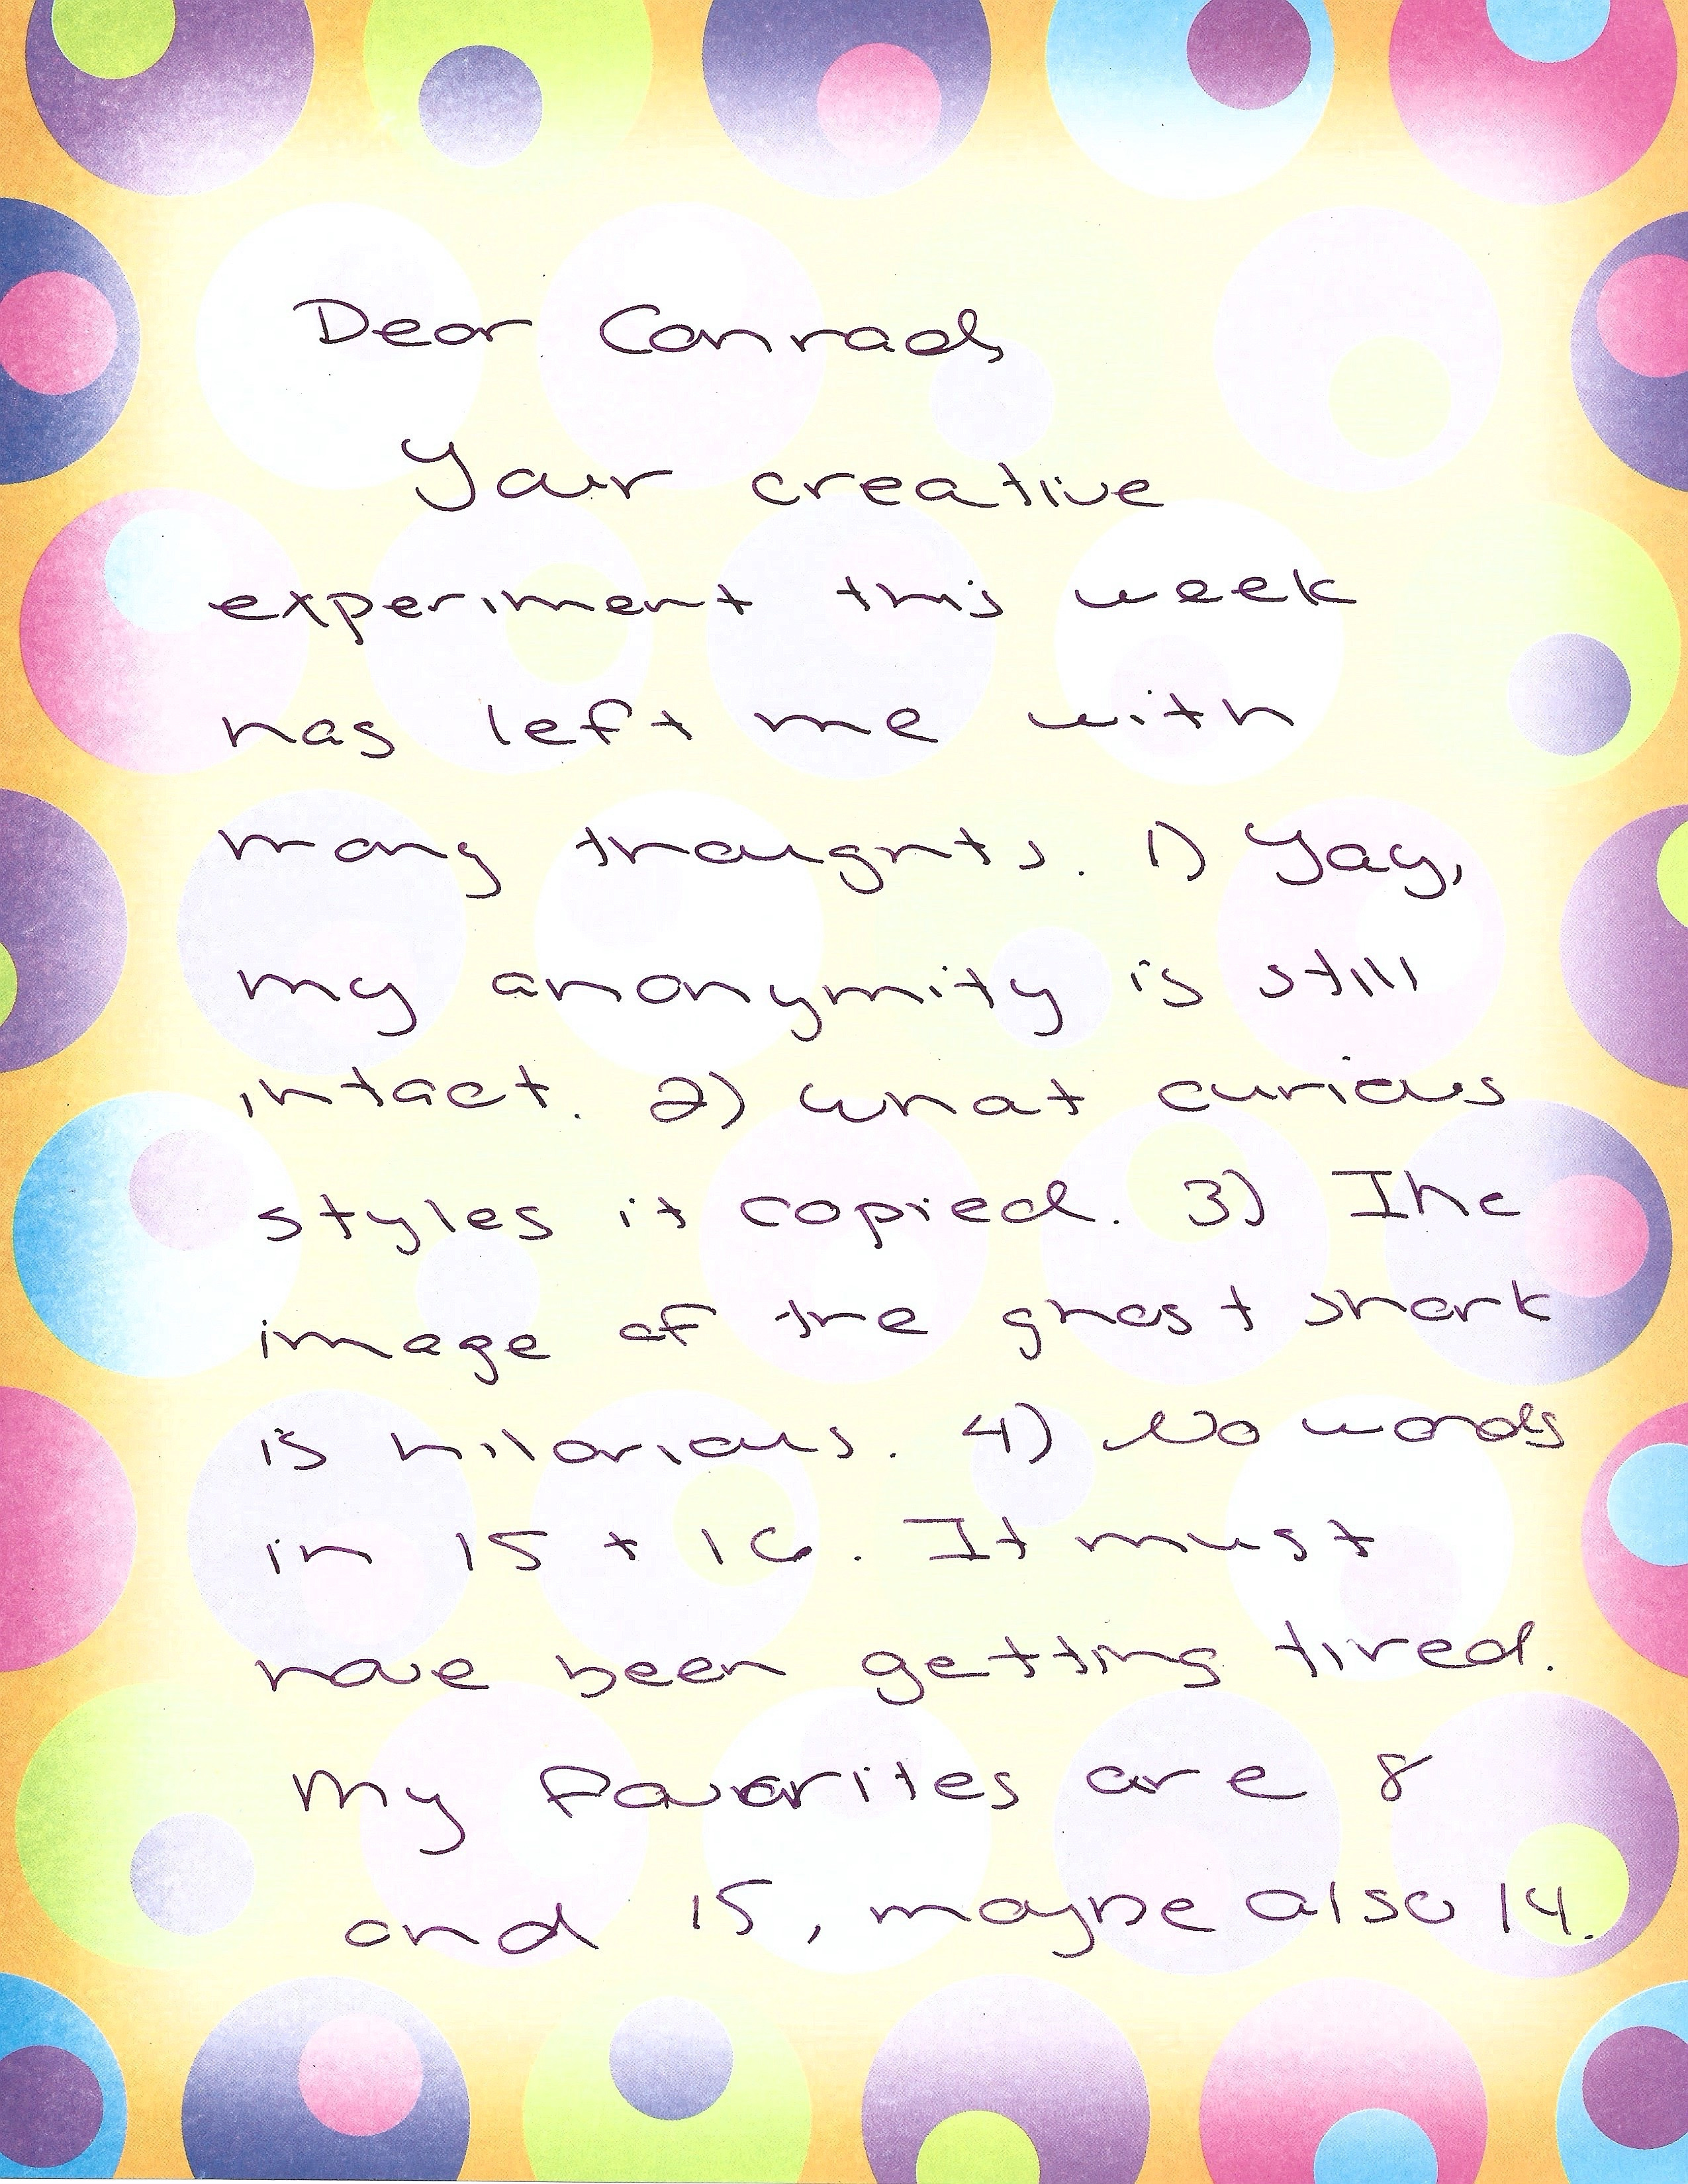 Dear Conrad,
Your creative
experiment this week
has left me with
many thoughts. 1) Yay,
my anonymity is still
intact. 2) What curious
styles it copied. 3) The
image of the ghost shark
is hilarious. 4) No words
in 15 + 16. It must
have been getting tired.
My favorites are 8
and 15, maybe also 14.